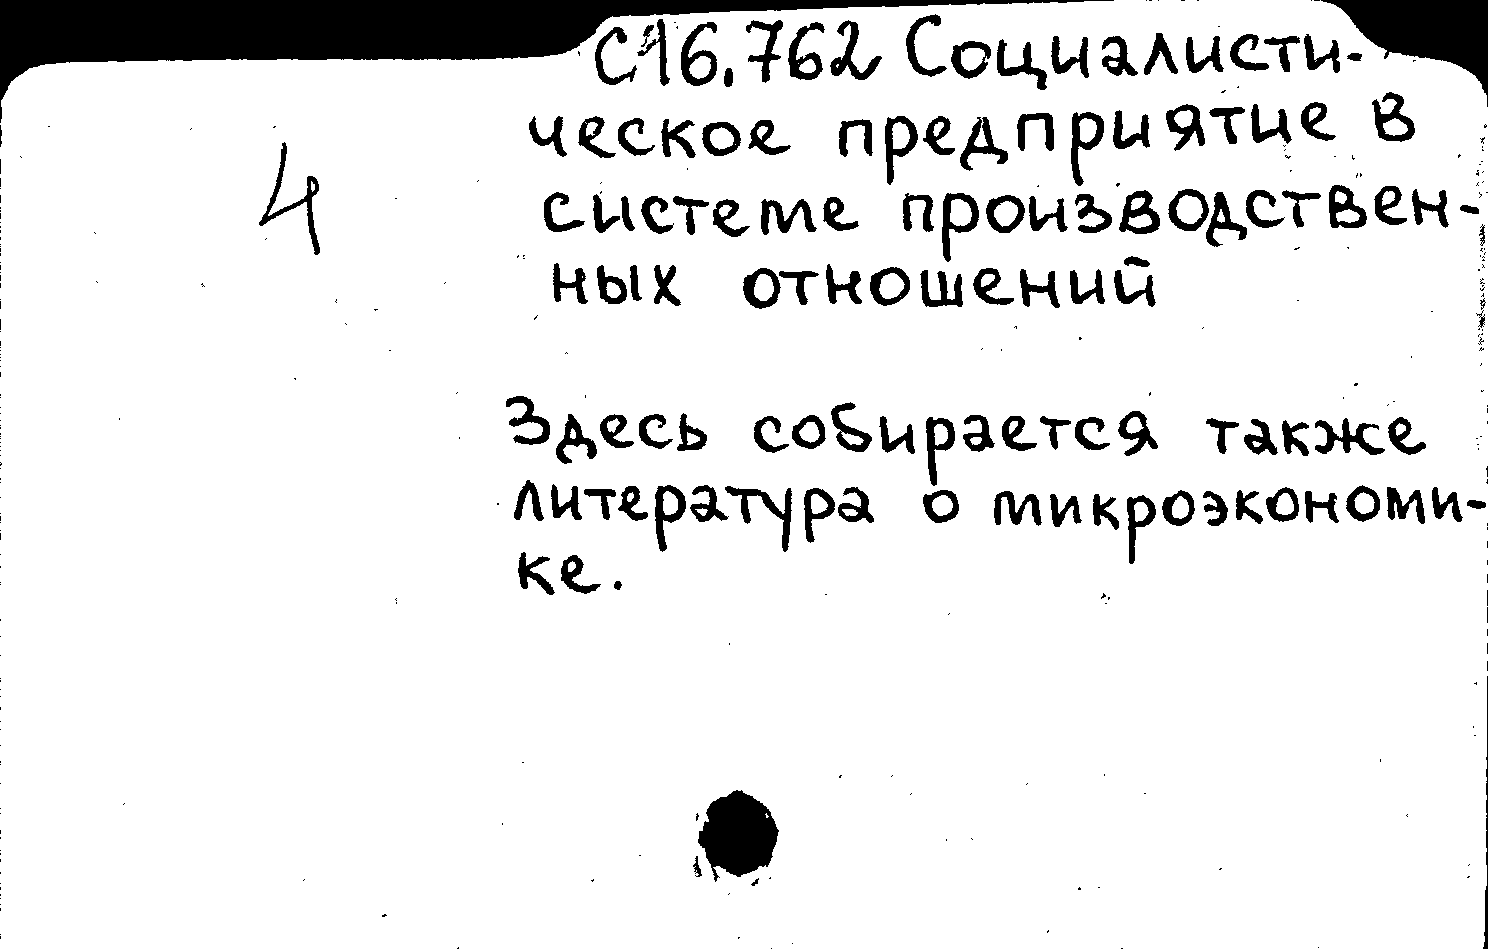 С16.762 Социалисти-
ческое предприятие в
4
системе производствен-
ных отношений
Здесь собирается также
литература о микроэкономи-
ке.